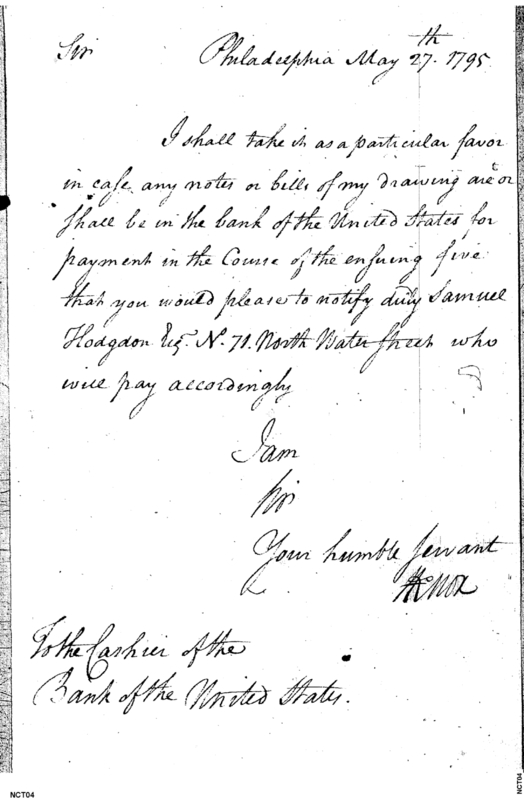 Sir Philadelphia May 27.th 1795
I shall take it as a particular favor
in case any notes or bills of my drawing are or
shall be in the bank of the United States for
payment in the Course of the ensuing five
that you would please to notify duly Samuel
Hodgdon Esq. No. 71. North Water Street who
will pay accordingly
I am
Sir
Your humble Servant
HKnox
To the Cashier of the
Bank of the United States.
NCT04
NCT04